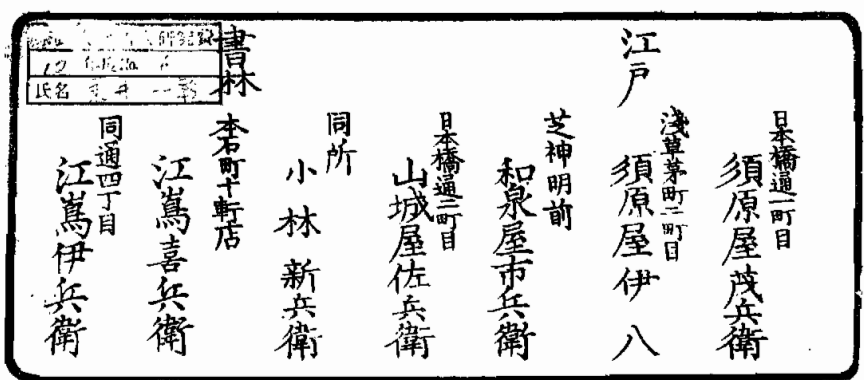 江戸
日本橋通一町目
須原屋茂兵衛
淺草茅町二町目
須原屋伊八
芝神明前
和泉屋市兵衛
日本橋通二町目
山城屋佐兵衛
同所
小林新兵衛
本石町十軒店
江嶌喜兵衛
同通四丁目
江嶌伊兵衛
書林
氏名